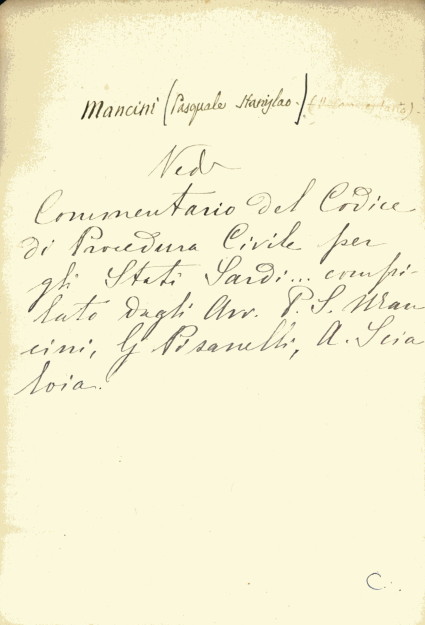 Mancini (Pasquale Stanislao.)
Vedi
Commentario del Codice
di Procedura Civile per
gli Stati Sardi... compi-
lato dagli Avv. P. S. Man
cini, G Pisanelli, A. Scia
loia.
C.